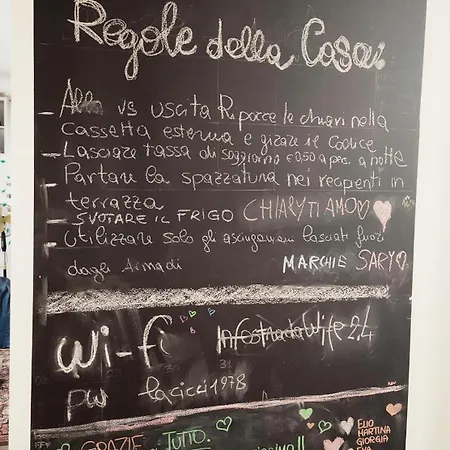 Regole della Casa:
Alla vs uscita Riporre le chiavi nella
cassetta esterna e girare il codice
- Lasciare tassa di soggiorno € 0,50 a pers. a notte
Portare la spazzatura nei recipienti in
terrazza
- SVOTARE IL FRIGO CHIARY TI AMO
- Utilizzare solo gli asciugamani lasciati fuori
dagli Armadi MARCHIE SARY
Wi-fi InfostradaWife 2,4
PW lacicci1978
GRAZIE TUTTO.
ELIO
MARTINA
GIORGIA
EVA